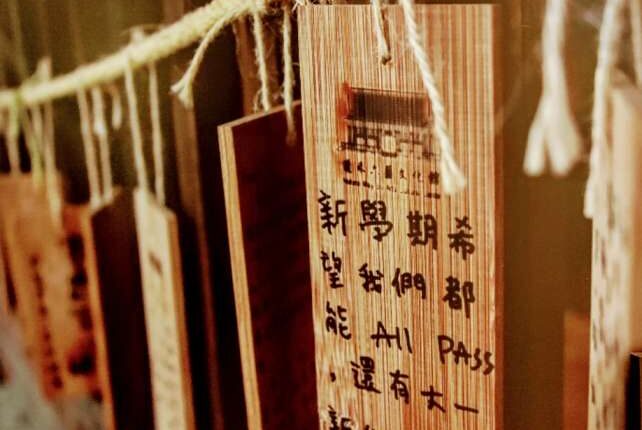 新學期希
望我們都
能 All PASS
，還有大一
新